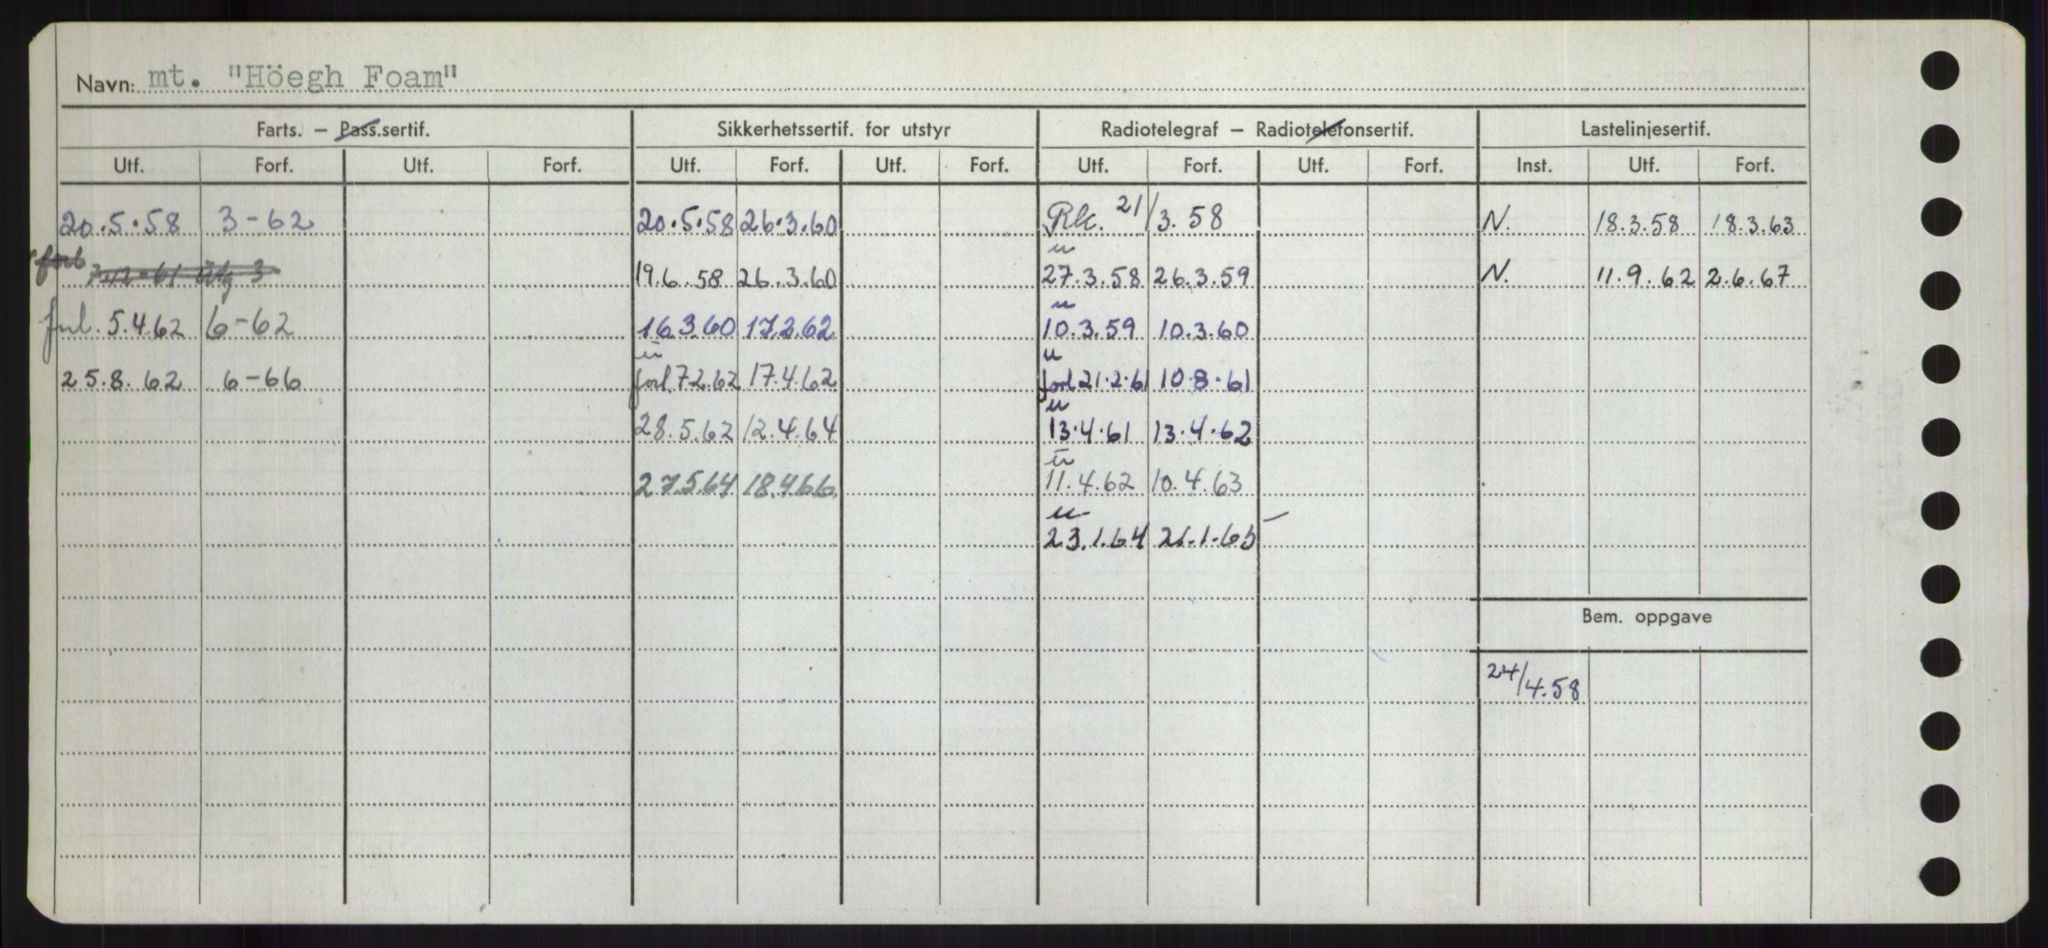 Navn: mt. "Höegh Foam"
Farts. — Pass.sertif. Sikkerhetssertif. for utstyr Radiotelegraf — Radiotelefonsertif. Lastelinjesertif.
Utf. Forf. Utf. Forf. Utf. Forf. Utf. Forf. Utf. Forf. Utf. Forf. Inst. Utf. Forf.
20.5.58 3-62 20.5.58 26.3.60 Rk. 21/3.58 N. 18.3.58 18.3.63
forl 7.12.61 3 19.6.58 26.3.60 27.3.58 26.3.59 N. 11.9.62 2.6.67
5.4.62 6-62 16.3.60 17.2.62 10.3.59 10.3.60
25.8.62 6-66 forl 7.2.62 17.4.62 forl 21.2.61 10.8.61
28.5.62 12.4.64 13.4.61 13.4.62
27.5.64 18.4.66 11.4.62 10.4.63
23.1.64 21.1.65
Bem. oppgave
24/4.58